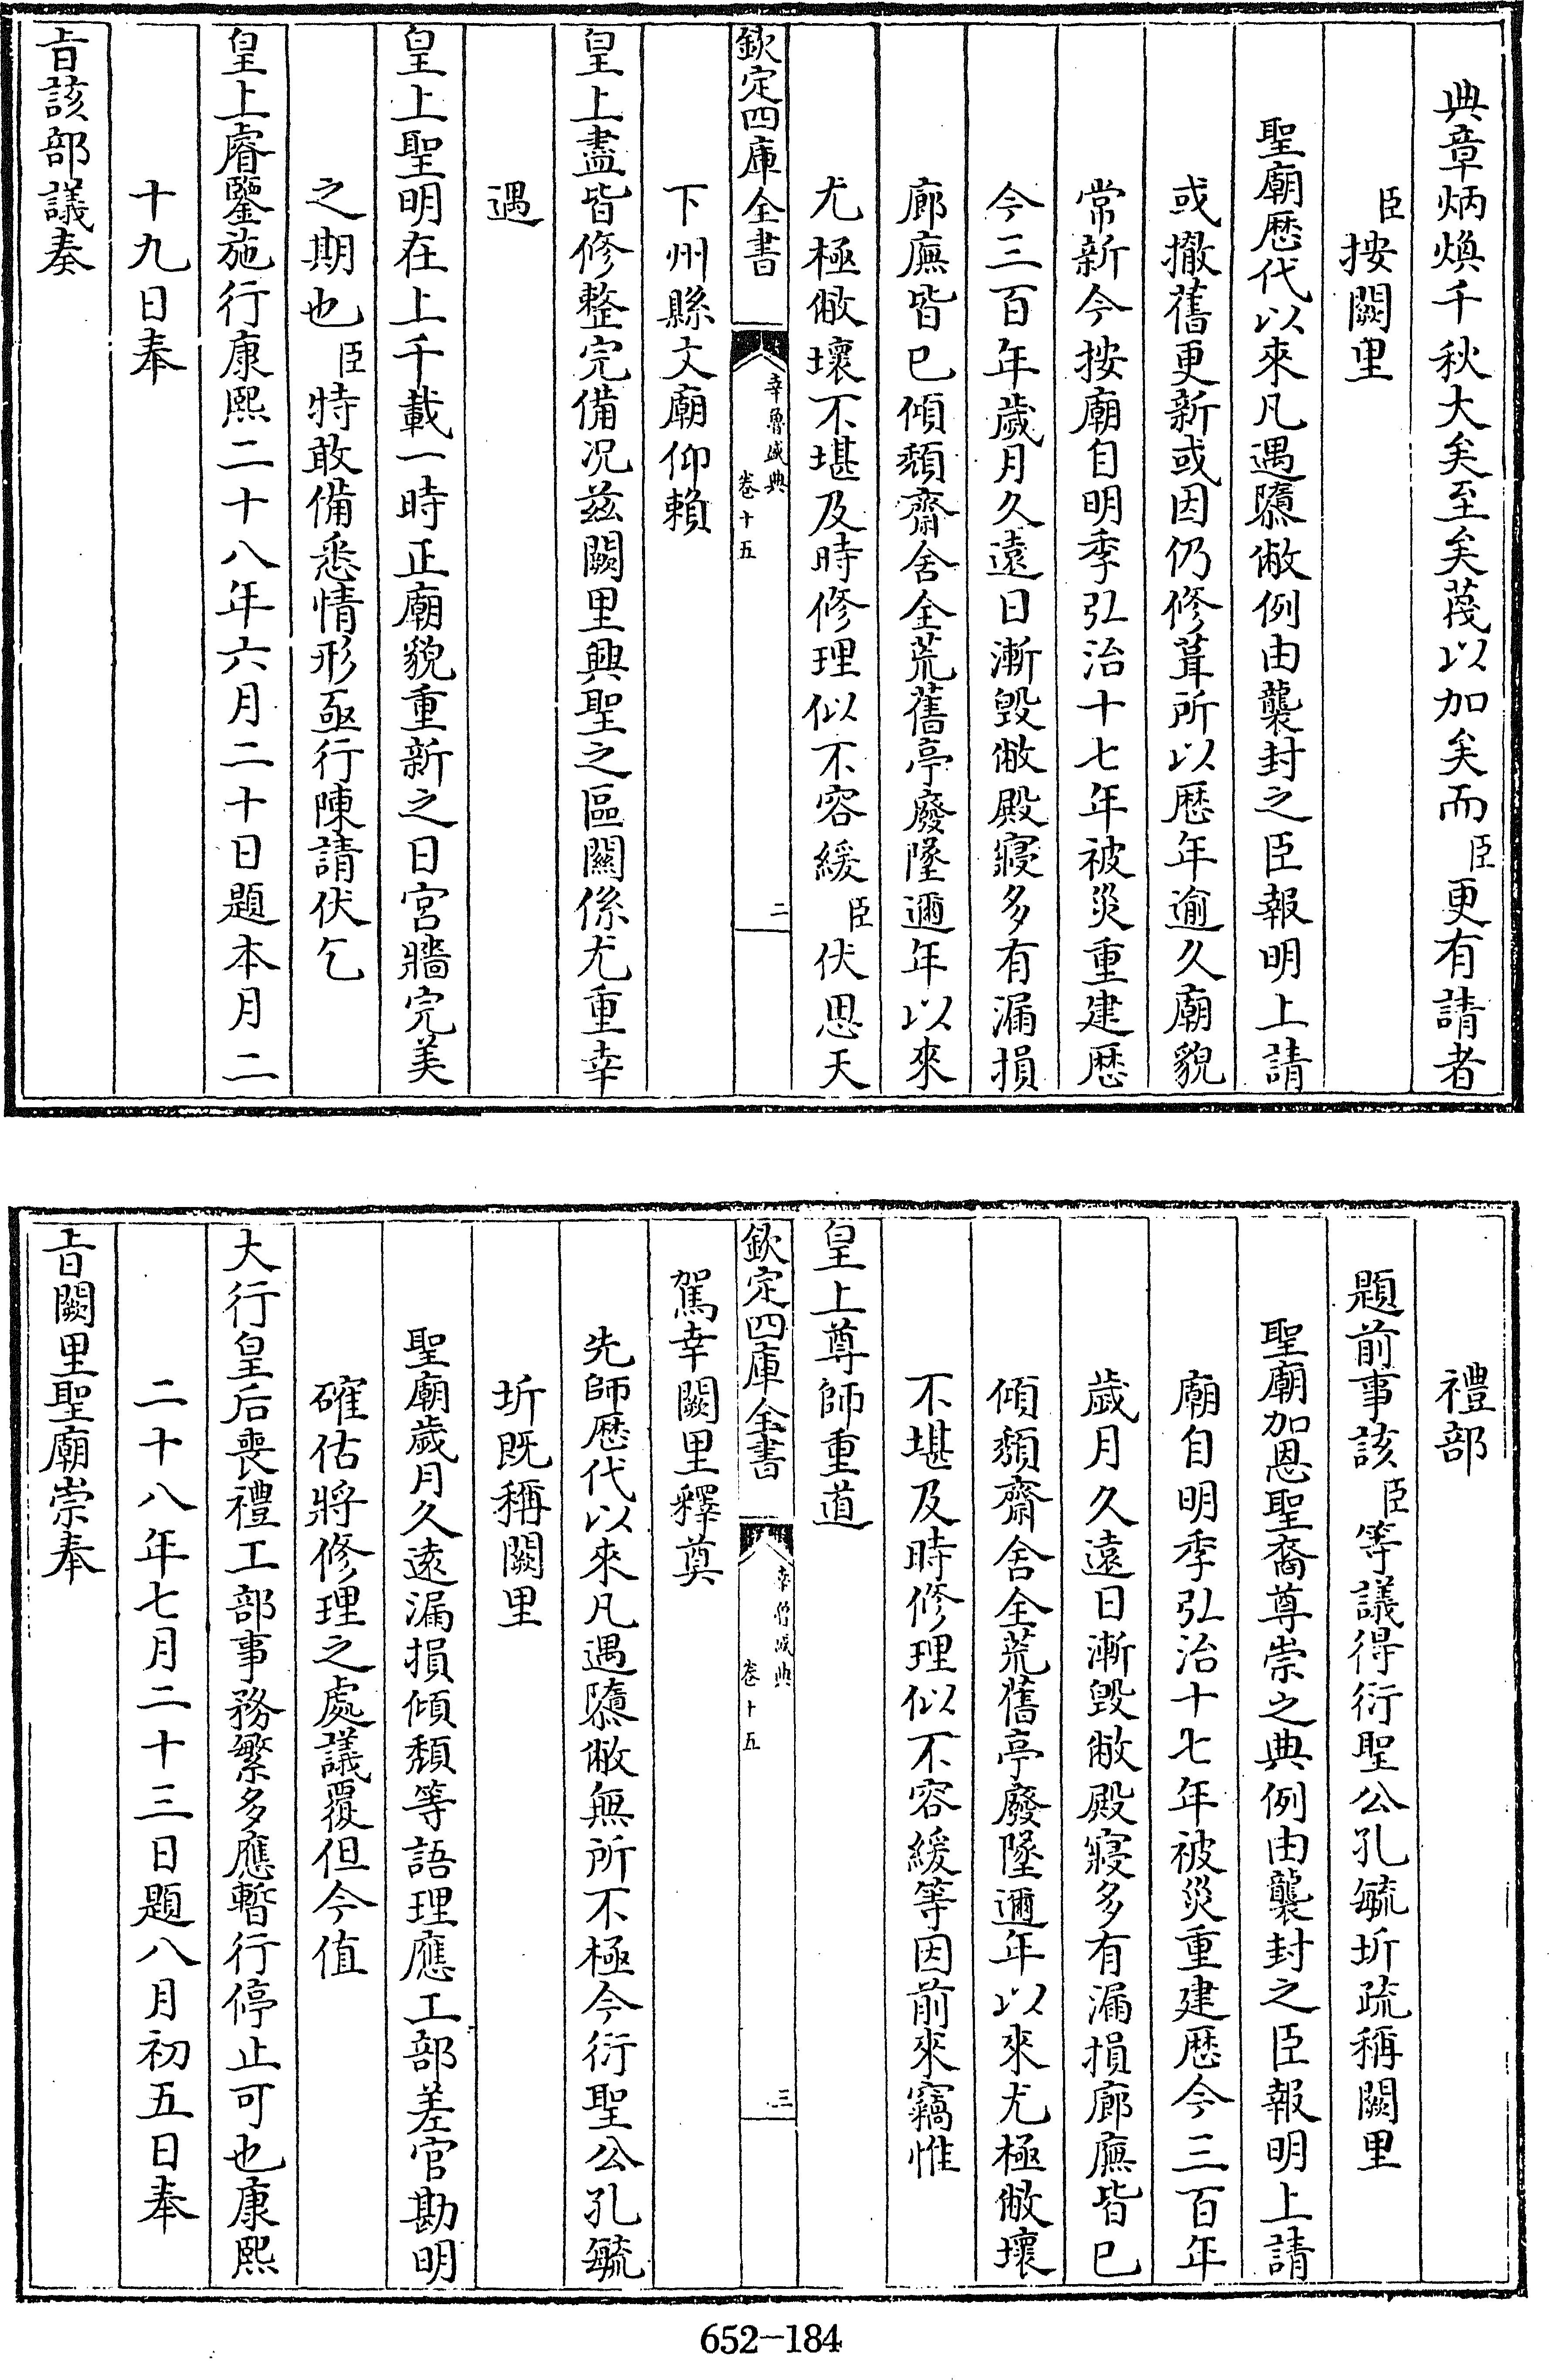 典章炳煥千秋大矣至矣蔑以加矣而臣更有請者
臣按闕里
聖廟歴代以來凡遇隳敝例由襲封之臣報明上請
或撤舊更新或因仍修葺所以歴年逾久廟貌
常新今按廟自明季弘治十七年被災重建歴
今三百年歲月久遠日漸毀敝殿寢多有漏損
廊廡皆已傾頽齋舍全荒舊亭廢墜邇年以來
尤極敝壞不堪及時修理似不容緩臣伏思天
欽定四庫全書
幸魯盛典
卷十五
二
下州縣文廟仰賴
皇上盡皆修整完備況兹闕里興聖之區關係尤重幸
遇
皇上聖明在上千載一時正廟貌重新之日宮牆完美
之期也臣特敢備悉情形亟行陳請伏乞
皇上睿鑒施行康熙二十八年六月二十日題本月二
十九日奉
旨該部議奏
禮部
題前事該臣等議得衍聖公孔毓圻疏稱闕里
聖廟加恩聖裔尊崇之典例由襲封之臣報明上請
廟自明季弘治十七年被災重建歴今三百年
歲月久遠日漸毀敝殿寢多有漏損廊廡皆已
傾頽齋舍全荒舊亭廢墜邇年以來尤極敝壞
不堪及時修理似不容緩等因前來竊惟
皇上尊師重道
欽定四庫全書
幸魯盛典
卷十五
三
駕幸闕里釋奠
先師歴代以來凡遇隳敝無所不極今衍聖公孔毓
圻既稱闕里
聖廟歲月久遠漏損傾頽等語理應工部差官勘明
確估將修理之處議覆但今值
大行皇后喪禮工部事務繁多應暫行停止可也康熙
二十八年七月二十三日題八月初五日奉
旨闕里聖廟崇奉
652-184